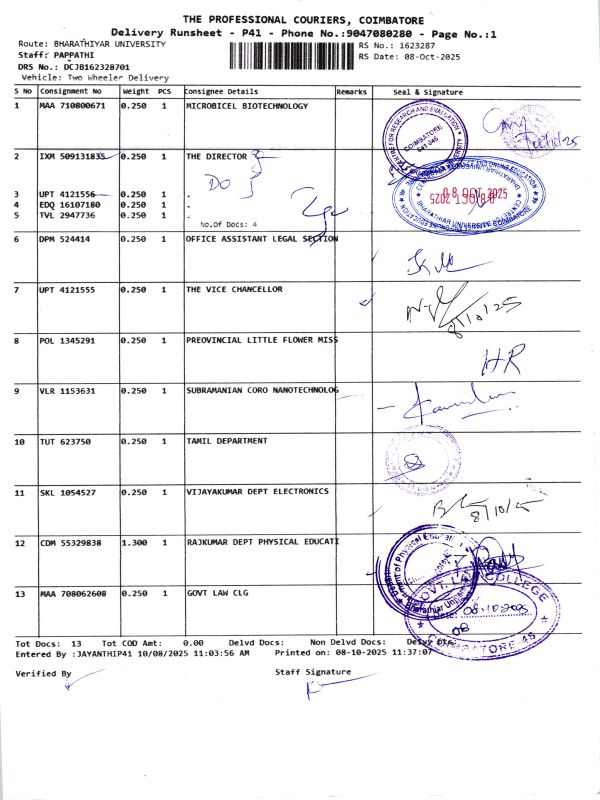 THE PROFESSIONAL COURIERS, COIMBATORE
Delivery Runsheet - P41 - Phone No.:9047080280 - Page No.:1
Route: BHARATHIYAR UNIVERSITY RS No.: 1623287
Staff: PAPPATHI RS Date: 08-Oct-2025
DRS No.: DCJB162328701
Vehicle: Two Wheeler Delivery
S No Consignment No Weight PCS Consignee Details Remarks Seal & Signature
1 MAA 710800671 0.250 1 MICROBICEL BIOTECHNOLOGY
CENTRE FOR RESEARCH AND EVALUATION
COIMBATORE
641 046
2 IXM 509131835 0.250 1 THE DIRECTOR
DO
3 UPT 4121556 0.250 1 .
4 EDQ 16107180 0.250 1 .
5 TVL 2947736 0.250 1 .
No.Of Docs: 4
08 OCT 2025
6 DPM 524414 0.250 1 OFFICE ASSISTANT LEGAL SECTION
7 UPT 4121555 0.250 1 THE VICE CHANCELLOR
8/10/25
8 POL 1345291 0.250 1 PREOVINCIAL LITTLE FLOWER MISS
HR
9 VLR 1153631 0.250 1 SUBRAMANIAN CORO NANOTECHNOLOG
10 TUT 623750 0.250 1 TAMIL DEPARTMENT
11 SKL 1054527 0.250 1 VIJAYAKUMAR DEPT ELECTRONICS
8/10/25
12 CDM 55329838 1.300 1 RAJKUMAR DEPT PHYSICAL EDUCATI
13 MAA 708062608 0.250 1 GOVT LAW CLG
GOVT. LAW COLLEGE
Date: 08-10-2025
COIMBATORE 45
Tot Docs: 13 Tot COD Amt: 0.00 Delvd Docs: Non Delvd Docs:
Entered By :JAYANTHIP41 10/08/2025 11:03:56 AM Printed on: 08-10-2025 11:37:07
Verified By Staff Signature